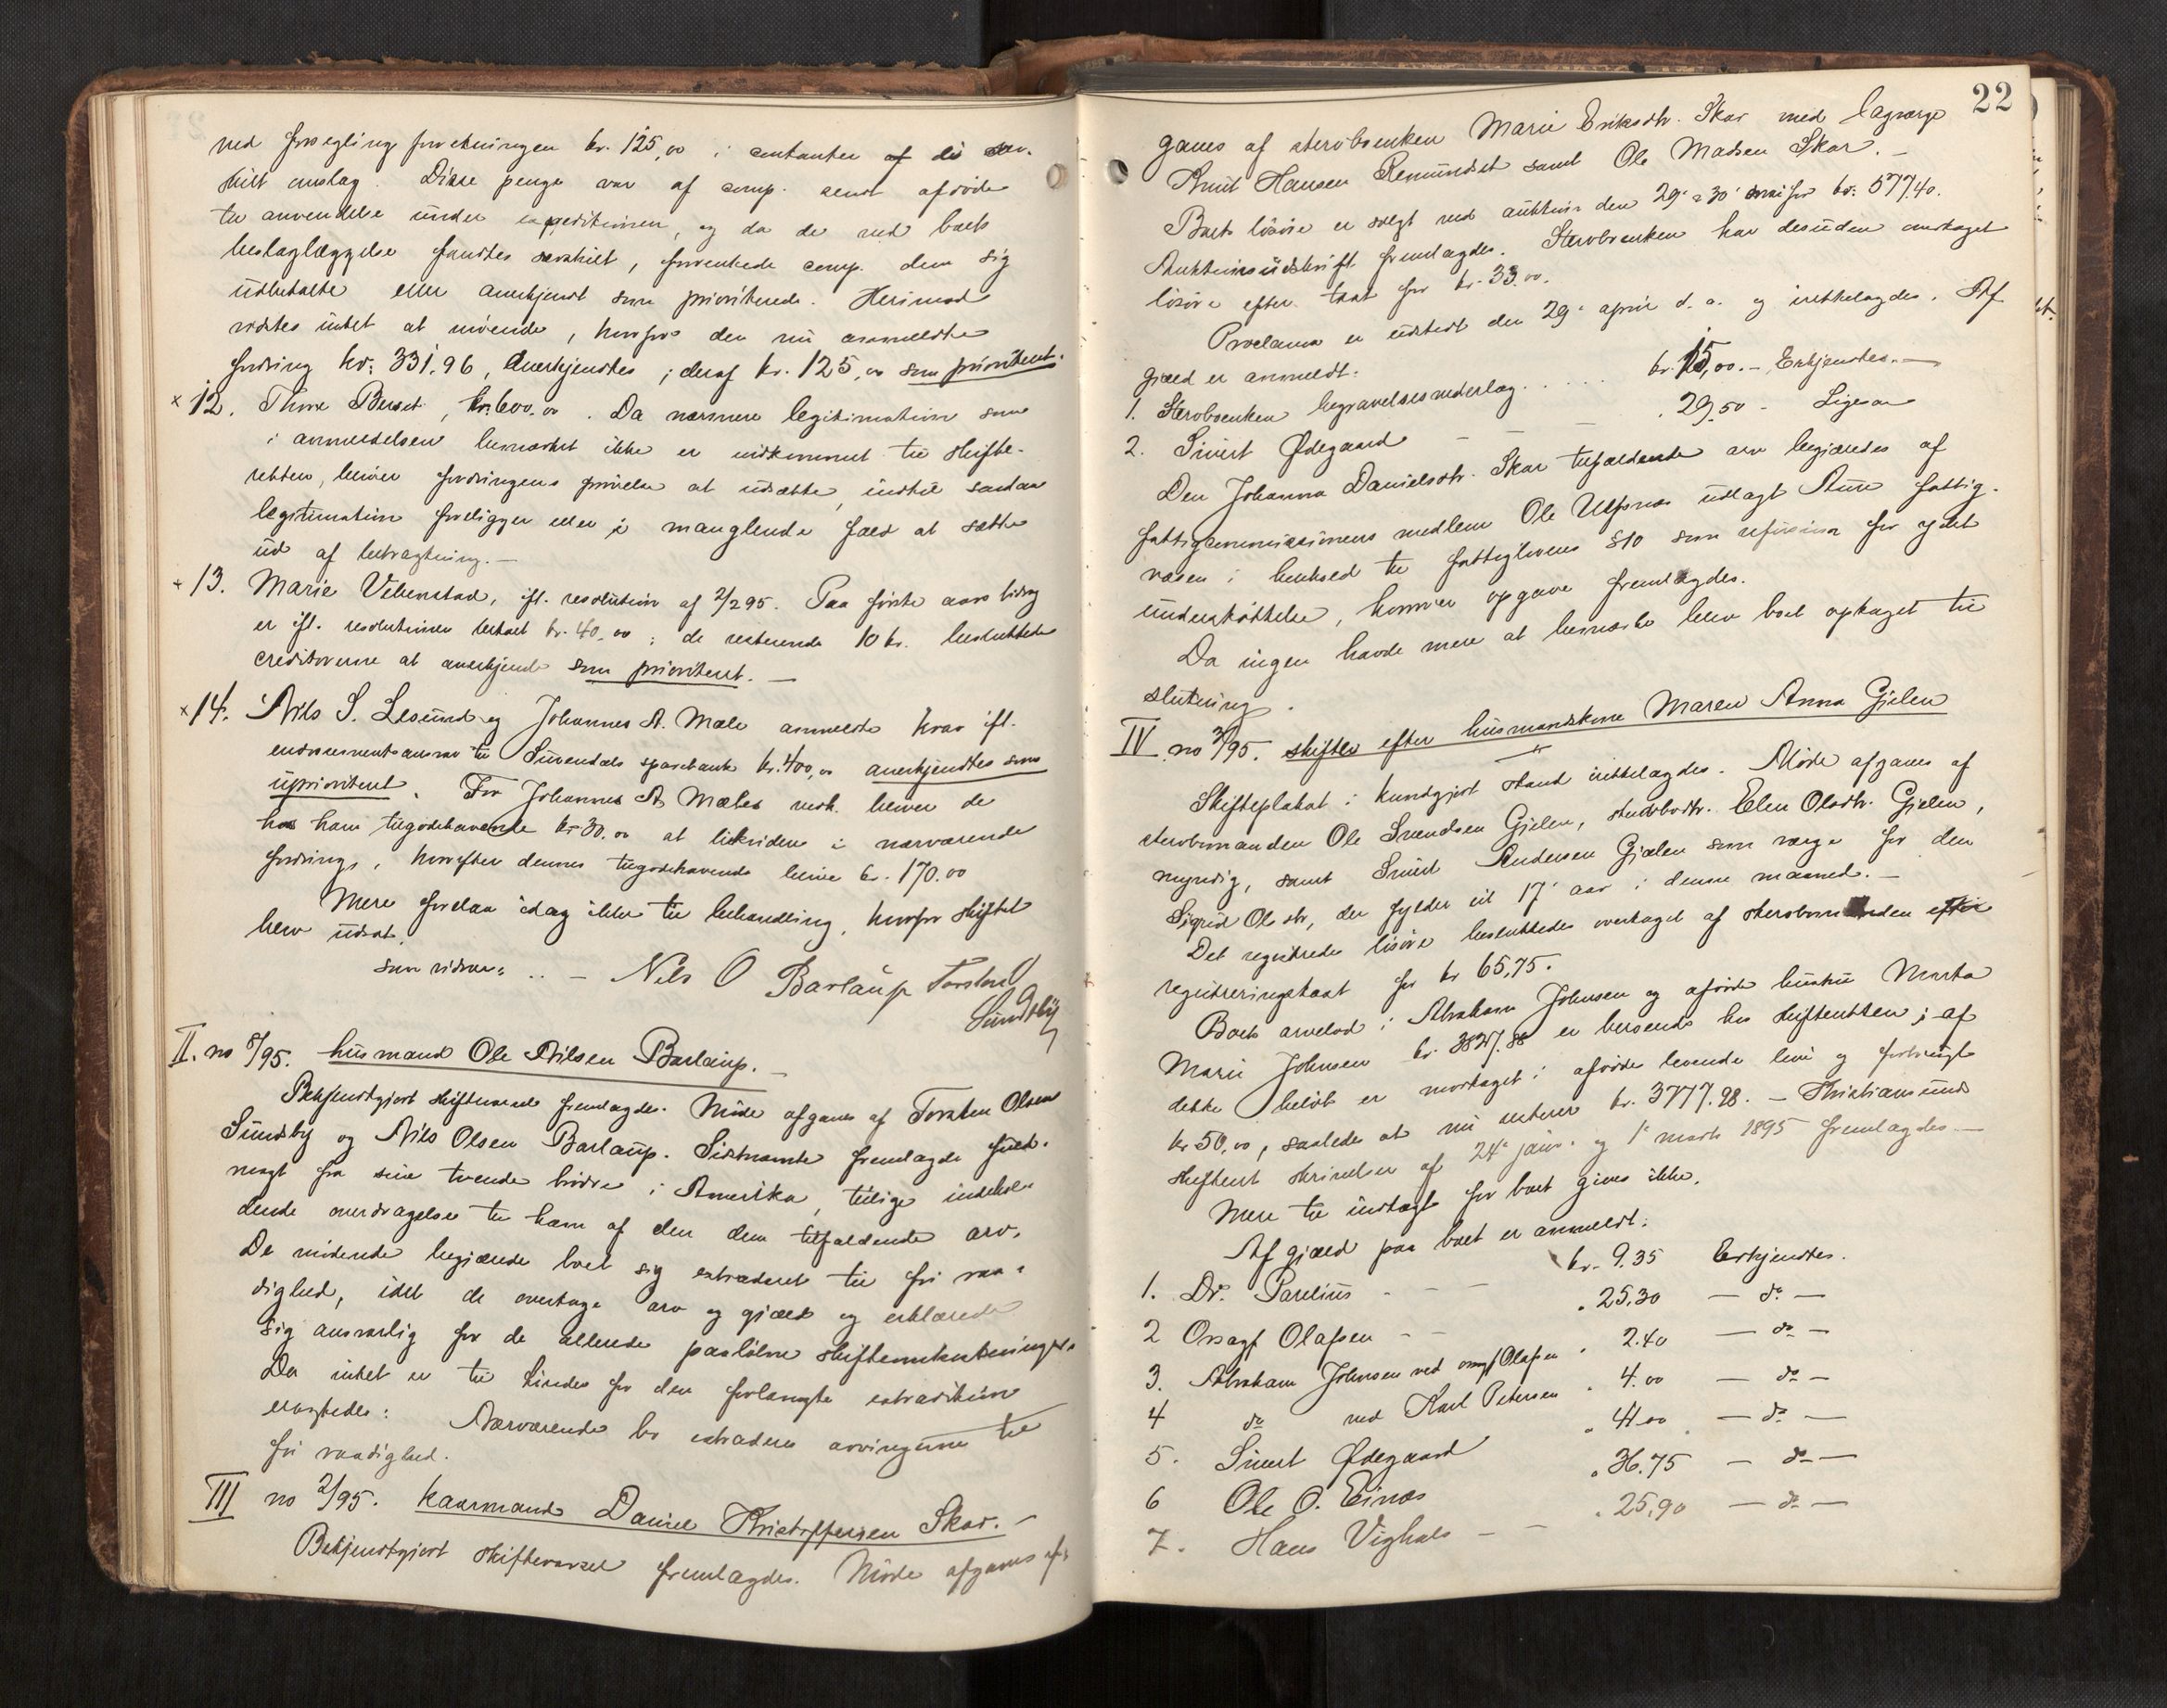 ved forseglingsforretningen kr. 125,00 i contanter af det sær-
skilt omslag. Disse penge var af comp. sendt afdøde
til anvendelse under expeditionen, og da de ved boets
beslaglæggelse fandtes særskilt, forventede comp. dem sig
udbetalte eller anerkjendt som prioriterede. Herimod
vidstes intet at indvende, hvorfor den nu anmeldte
fordring kr: 331,96, anerkjendtes; deraf kr. 125,00 som prioriteret.
x 12. Thore Berset, kr. 600,00. Da nærmere legitimation som
i anmeldelsen bemærket ikke er indkommet til skifte-
retten, bliver fordringens prøvelse at udsætte, indtil saadan
legitimation foreligger eller i manglende fald at sætte
ud af betragtning. —
x 13. Marie Vebenstad, ifl. resolution af 2/2 95. Paa første aars bidrag
er ifl. resolutionen betalt kr. 40,00; de resterende 10 kr. besluttede
creditorerne at anerkjende som prioriteret. —
x 14. Nils S. Lesund og Johannes A. Mæle anmeldte krav ifl.
endossementsansvar til Surendals sparebank kr. 400,00 anerkjendtes som
uprioriteret. For Johannes A. Mæles vedk. bliver de
hos ham tilgodehavende kr 30.00 at likvidere i nærværende
fordring, hvorefter dennes tilgodehavende bliver kr. 170.00
Mere forelaa idag ikke til behandling, hvorfor skiftet
blev udsat.
som vidner: .. — Nils O Barlaup Torsten O
Sundsby
II. no 8/95. husmand Ole Nilsen Barlaup. —
Bekjendtgjort skiftevarsel fremlagdes. Møde afgaves af Torsten Olsen
Sundsby og Nils Olsen Barlaup. Sidstnævnte fremlagde fuld-
magt fra sine tvende brødre i Amerika, tillige indehol-
dende overdragelse til ham af den dem tilfaldende arv.
De mødende begjærede boet sig extraderet til fri raa-
dighed, idet de overtage arv og gjæld og erklærede
sig ansvarlig for de allerede paaløbne skifteomkostninger.
Da intet er til hinder for den forlangte extradition
eragtedes: Nærværende bo extraderes arvingerne til
fri raadighed.
III no 2/95. kaarmand Daniel Kristoffersen Skar. —
Bekjendtgjort skiftevarsel fremlagdes. Møde afgaves af
22
gaves af sterboenken Marie Eriksdtr. Skar med lagværge
Knut Hansen Remundset samt Ole Madsen Skar. —
Boets løsøre er solgt ved auktion den 29 & 30 mai for kr: 577.40.
Auktionsudskrift fremlagdes. Sterboenken har desuden modtaget
løsøre efter taxt for kr. 33.00.
Proclama er udstedt den 29 april d. a. og irettelagdes. Af
gjæld er anmeldt:
1. Sterboenken begravelsesudlæg . . . . . kr. 15,00. — Erkjendtes. —
2. Sivert Ødegaard — — — . 29,50 — Ligesaa
Den Johanna Danielsdtr. Skar tilfaldende arv begjæredes af
fattigcommissionens medlem Ole Ulfsnes udlagt Aure fattig-
væsen i henhold til fattiglovens §10 som refusion for ydet
understøttelse, hvorover opgave fremlagdes.
Da ingen havde mere at bemærke blev boet optaget til
slutning.
IV no 3/95. skifte efter husmandskone Maren Anna Gjelen
Skifteplakat i kundgjort stand irettelagdes. Møde afgaves af
sterbomanden Ole Svendsen Gjelen, sterbodtr. Elen Olsdtr. Gjelen,
myndig, samt Sivert Andersen Gjelen som værge for den
Sigrid Olsdtr, der fylder sit 17' aar i denne maaned. —
Det registrerte løsøre besluttedes overtaget af sterbomanden efter
registreringstaxt for kr 65,75.
Boets arvelod i Abraham Johnsen og afdøde hustru Marta
Marie Johnsen kr. 3827.88 er beroende hos skifteretten; af
dette beløb er modtaget i afdøde levende live og forbrugt
kr 50,00, saaledes at nu resterer kr. 3777.98. — Kristiansunds
skifterets skrivelser af 24 janr. og 1' marts 1895 fremlagdes —
Mere til indtægt for boet gives ikke.
Af gjæld paa boet er anmeldt:
1. Dr. Parelius — — — kr. 9.35 Erkjendtes.
2 Orsagf Olafsen — — . 25.30 — do —
3. Abraham Johnsen ved orsagf Olafsen . 2.40 — do —
4 do ved Karl Petersen . 4.00 — do —
5. Sivert Ødegaard . 41.00 — do —
6 Ole O. Eines . 36.75 — do —
7. Hans Vighals — — . 25,90 — do —